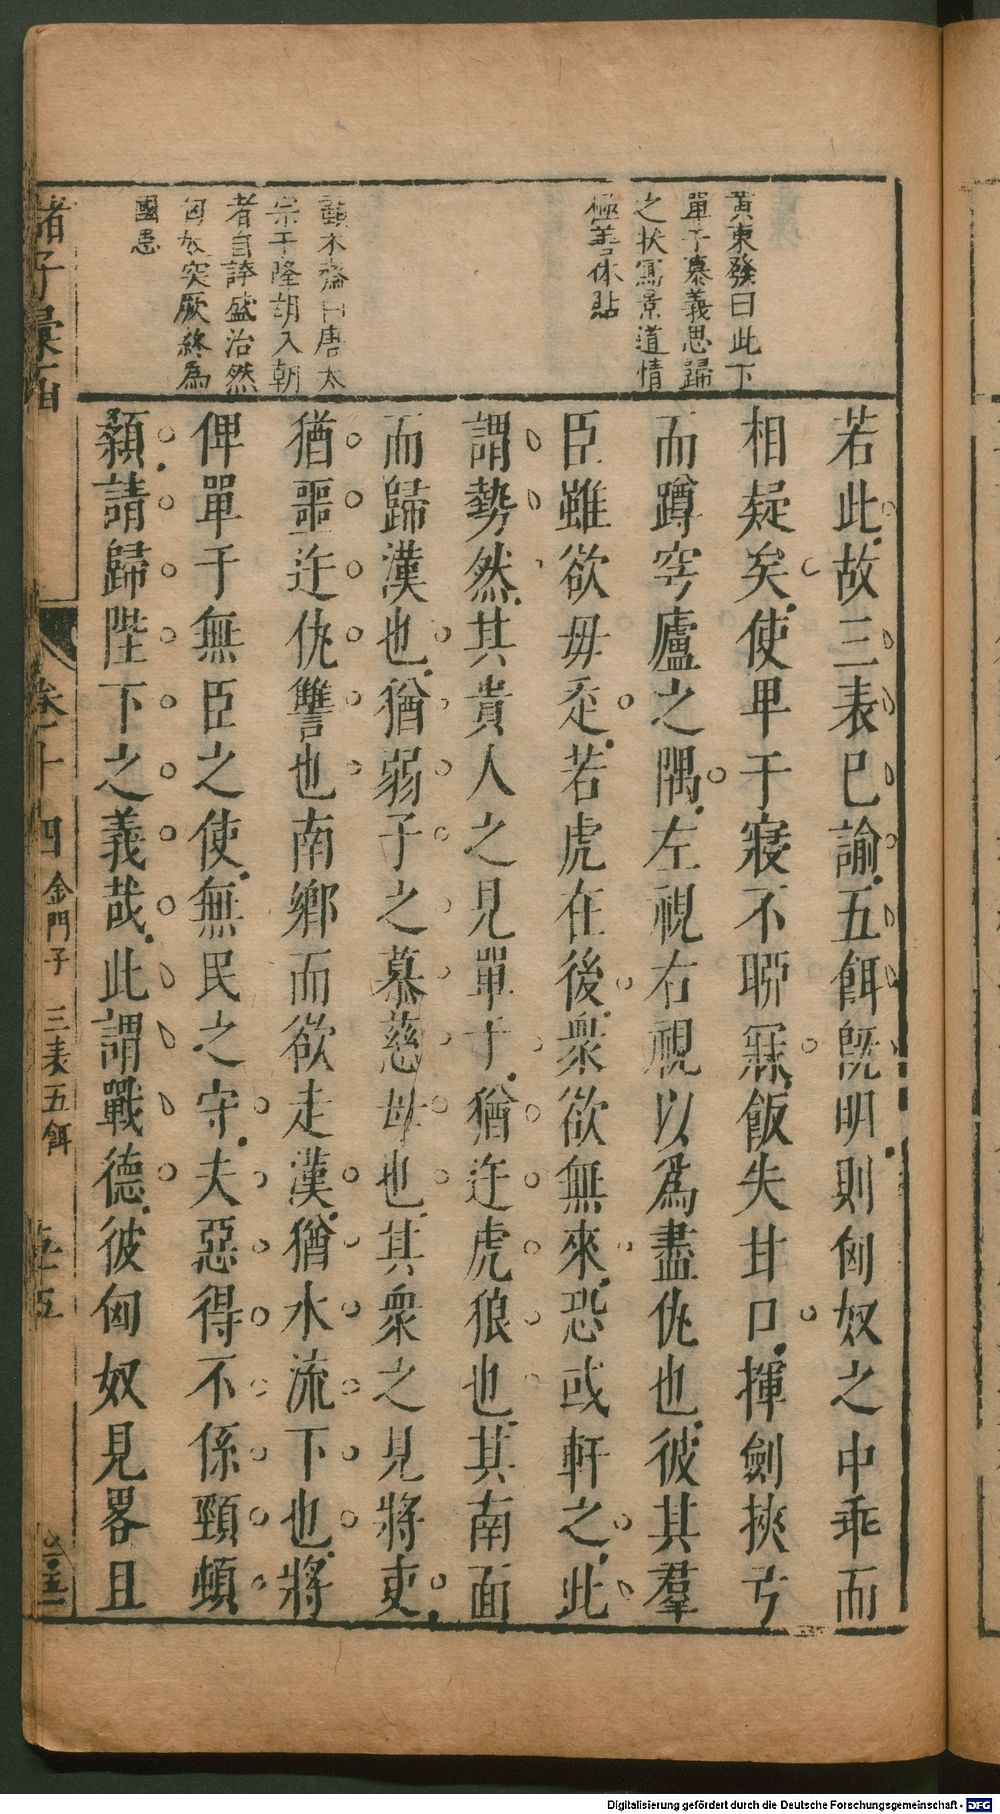 黃東發曰此下
單于慕義思歸
之狀寫景道情
極善体貼
蘇木齋曰唐太
宗于隆胡入朝
者自誇盛治然
匈奴突厥終為
國患
若此故三表已諭五餌旣明則匈奴之中乖而
相疑矣使單于寢不聊寐飯失甘口揮劍挾弓
而蹲穹廬之隅左視右視以爲盡仇也彼其羣
臣雖欲毋走若虎在後衆欲無來恐或軒之此
謂勢然其貴人之見單于猶迕虎狼也其南面
而歸漢也猶弱子之慕慈母也其衆之見將吏
猶噩迕仇讐也南鄉而欲走漢猶水流下也將
俾單于無臣之使無民之守夫惡得不係頸頓
顙請歸陛下之義哉此謂戰德彼匈奴見畧且
諸子彙函
卷十四 金門子 三表五餌 五五
Digitalisierung gefördert durch die Deutsche Forschungsgemeinschaft - DFG